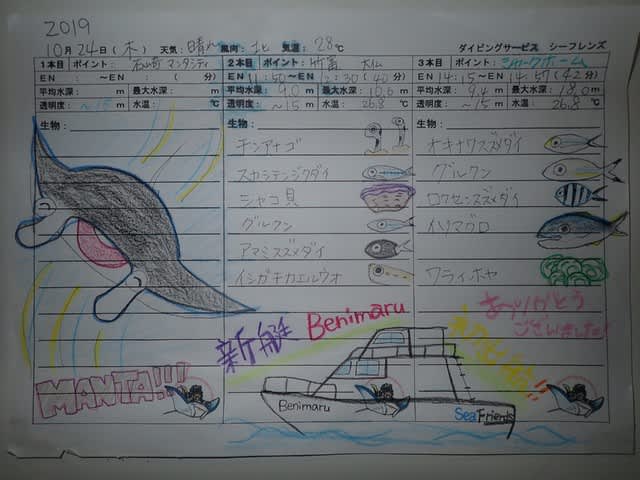 2019
10月24日(木) 天気:晴れ 風向:北 気温:28℃ ダイビングサービス シーフレンズ
1本目 ポイント: 石崎 マンタシティ
EN : 〜EN : ( 分)
平均水深: m 最大水深: m
透明度: 〜15 m 水温: ℃
生物:
MANTA!!!
2本目 ポイント: 竹富 大仏
EN 11:50〜EN 12:30(40分)
平均水深: 9.0 m 最大水深: 10.6 m
透明度: 〜15 m 水温: 26.8 ℃
生物:
チンアナゴ
スカシテンジクダイ
シャコ貝
グルクン
アマミスズメダイ
イシガキカエルウオ
3本目 ポイント: シャークホーム
EN 14:15〜EN 14:57(42分)
平均水深: 9.4 m 最大水深: 18.0 m
透明度: 〜15 m 水温: 26.8 ℃
生物:
オキナワスズメダイ
グルクン
ロクセンスズメダイ
イソマグロ
ワライボヤ
ありがとう
ございました!
新艇 Benimaru
Benimaru
Sea Friends